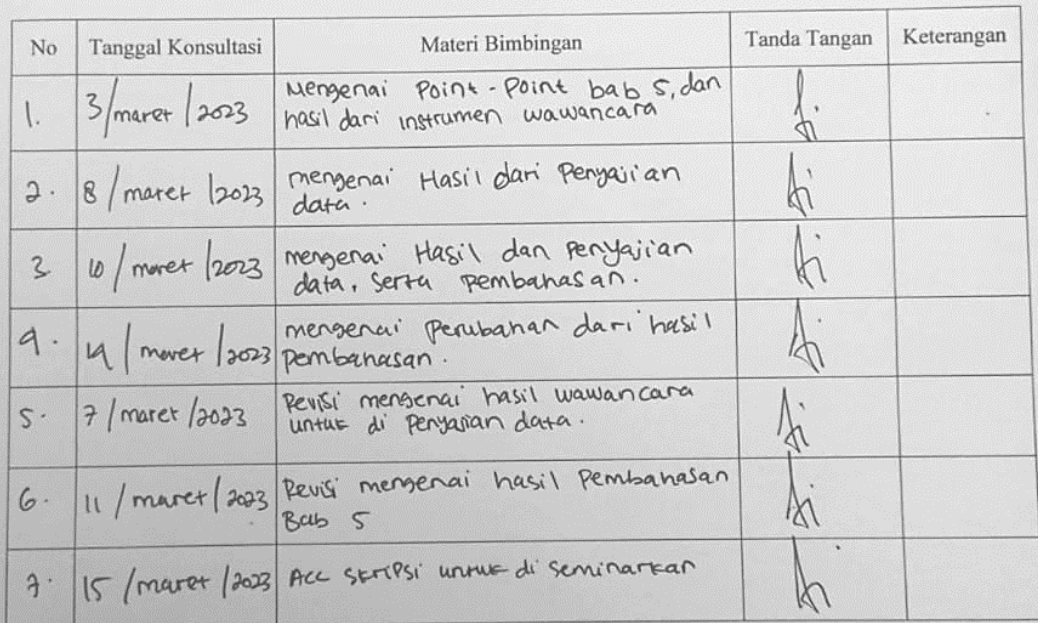 No Tanggal Konsultasi Materi Bimbingan Tanda Tangan Keterangan
1. 3/maret/2023 Mengenai Point-Point bab 5, dan
hasil dari instrumen wawancara
2. 8/maret/2023 mengenai Hasil dari Penyajian
data.
3 10/maret/2023 mengenai Hasil dan Penyajian
data, serta pembahasan.
4. 14/maret/2023 mengenai perubahan dari hasil
pembahasan.
5. 7/maret/2023 Revisi mengenai hasil wawancara
untuk di Penyajian data.
6. 11/maret/2023 Revisi mengenai hasil Pembahasan
Bab 5
7. 15/maret/2023 Acc skripsi untuk di seminarkan